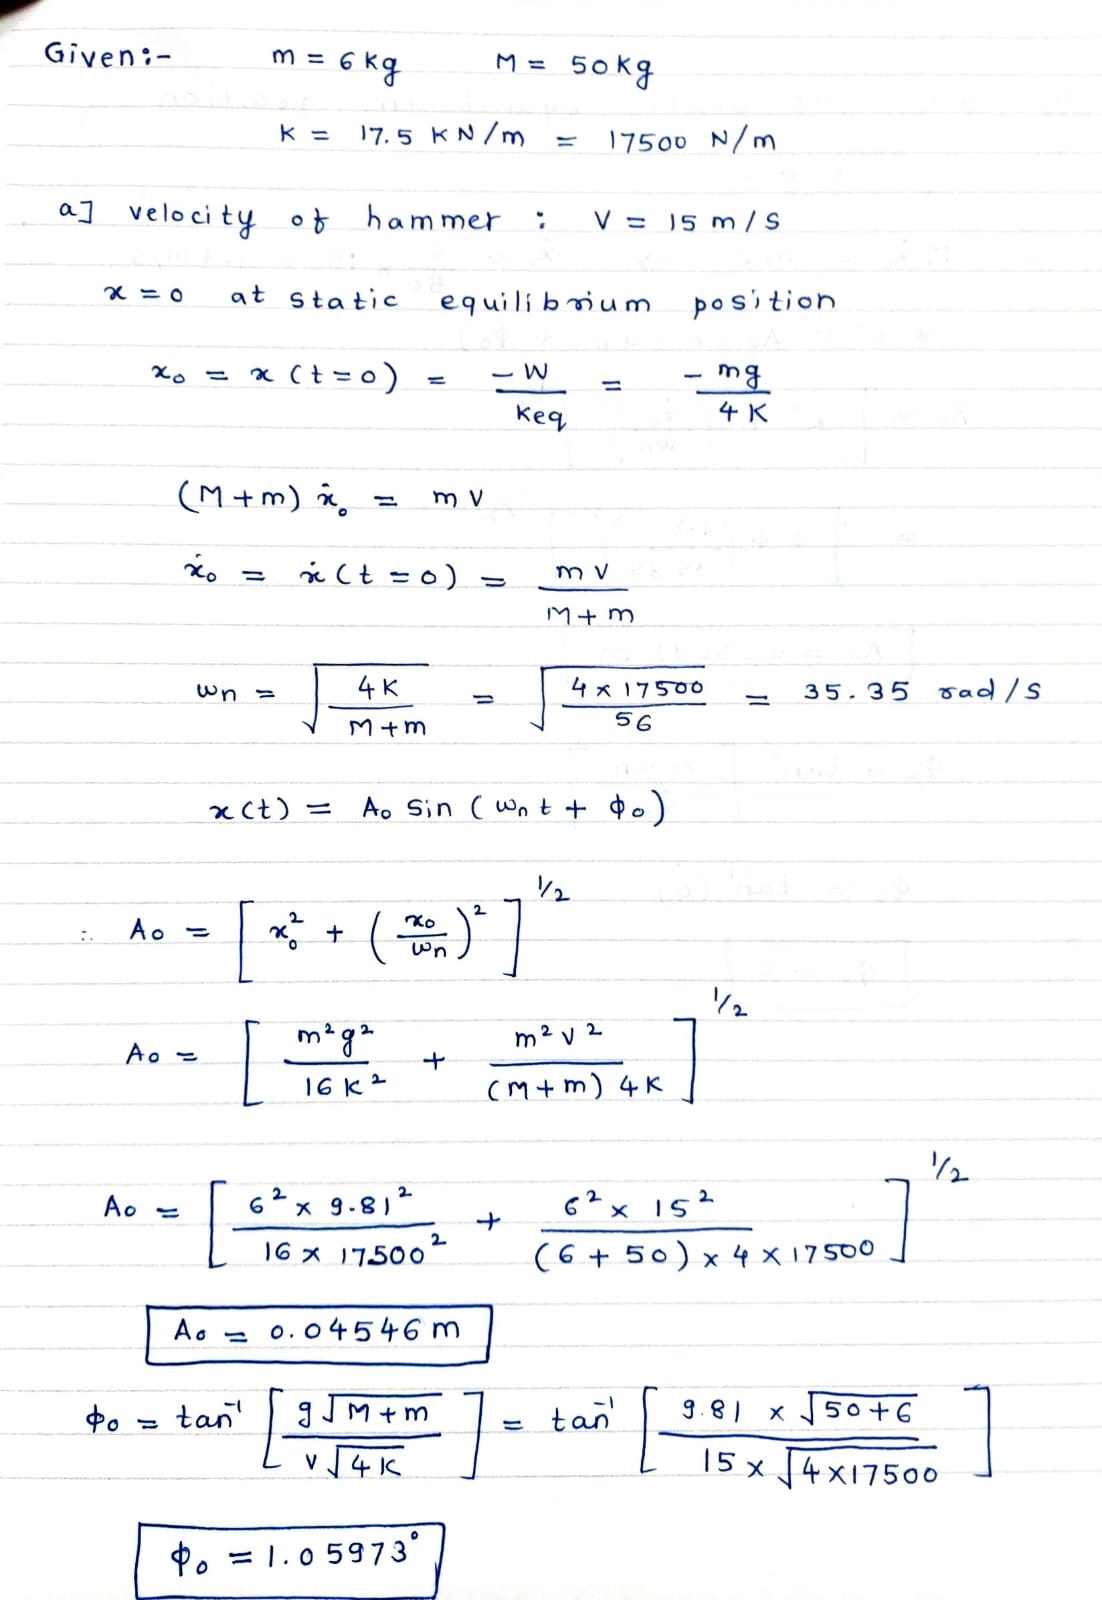 Given:- m = 6 kg M = 50 kg
K = 17.5 KN/m = 17500 N/m
a] velocity of hammer : V = 15 m/s
x = 0 at static equilibrium position
x₀ = x (t = 0) = -W/Keq = - mg/4K
(M + m) ẋ₀ = m v
ẋ₀ = ẋ (t = 0) = m v/M + m
wn = √(4K/M + m) = √(4 × 17500/56) = 35.35 rad/s
x(t) = A₀ Sin (wn t + ϕ₀)
∴ A₀ = [ x₀² + (x₀/wn)² ]^1/2
A₀ = [ m²g²/16 K² + m² v²/(M + m) 4K ]^1/2
A₀ = [ 6² × 9.81²/16 × 17500² + 6² × 15²/(6 + 50) × 4 × 17500 ]^1/2
A₀ = 0.04546 m
ϕ₀ = tan⁻¹ [ g√(M + m)/v√(4K) ] = tan⁻¹ [ 9.81 × √(50 + 6)/15 × √(4 × 17500) ]
ϕ₀ = 1.05973°